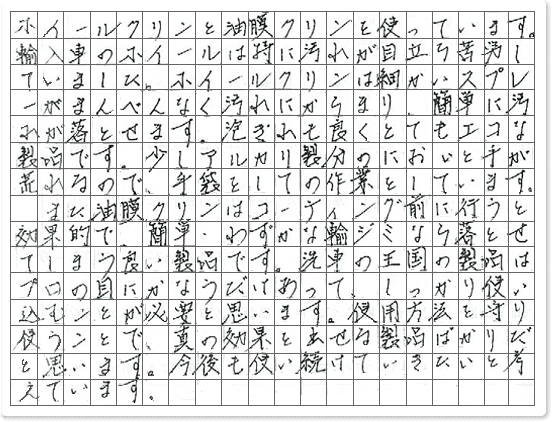 ホイールクリンと油膜クリンを使っています。
輸入車のホイールは特に汚れが目立ち苦労し
ていました。ホイールクリンは細かいスプレ
ーがまんべんなく汚れにからまり、簡単に汚
れが落とせます。泡ぎれも良くとてもエコな
製品です。少しアルカリ製分のにおいと手が
荒れるので、手袋をしての作業をしています。
また油膜クリンはコーティング前に行うと
効果的で、簡単・わずかな輪ジミなら落とせ
てしまう良い製品です。洗車の王国の製品は
プロの目にかなうだけあって、しっかり使い
込むことが必要と思います。使用方法を守り
使うことで、真の効果を出せる製品ばかりだ
と思います。今後も使い続けていきたいと考
えています。